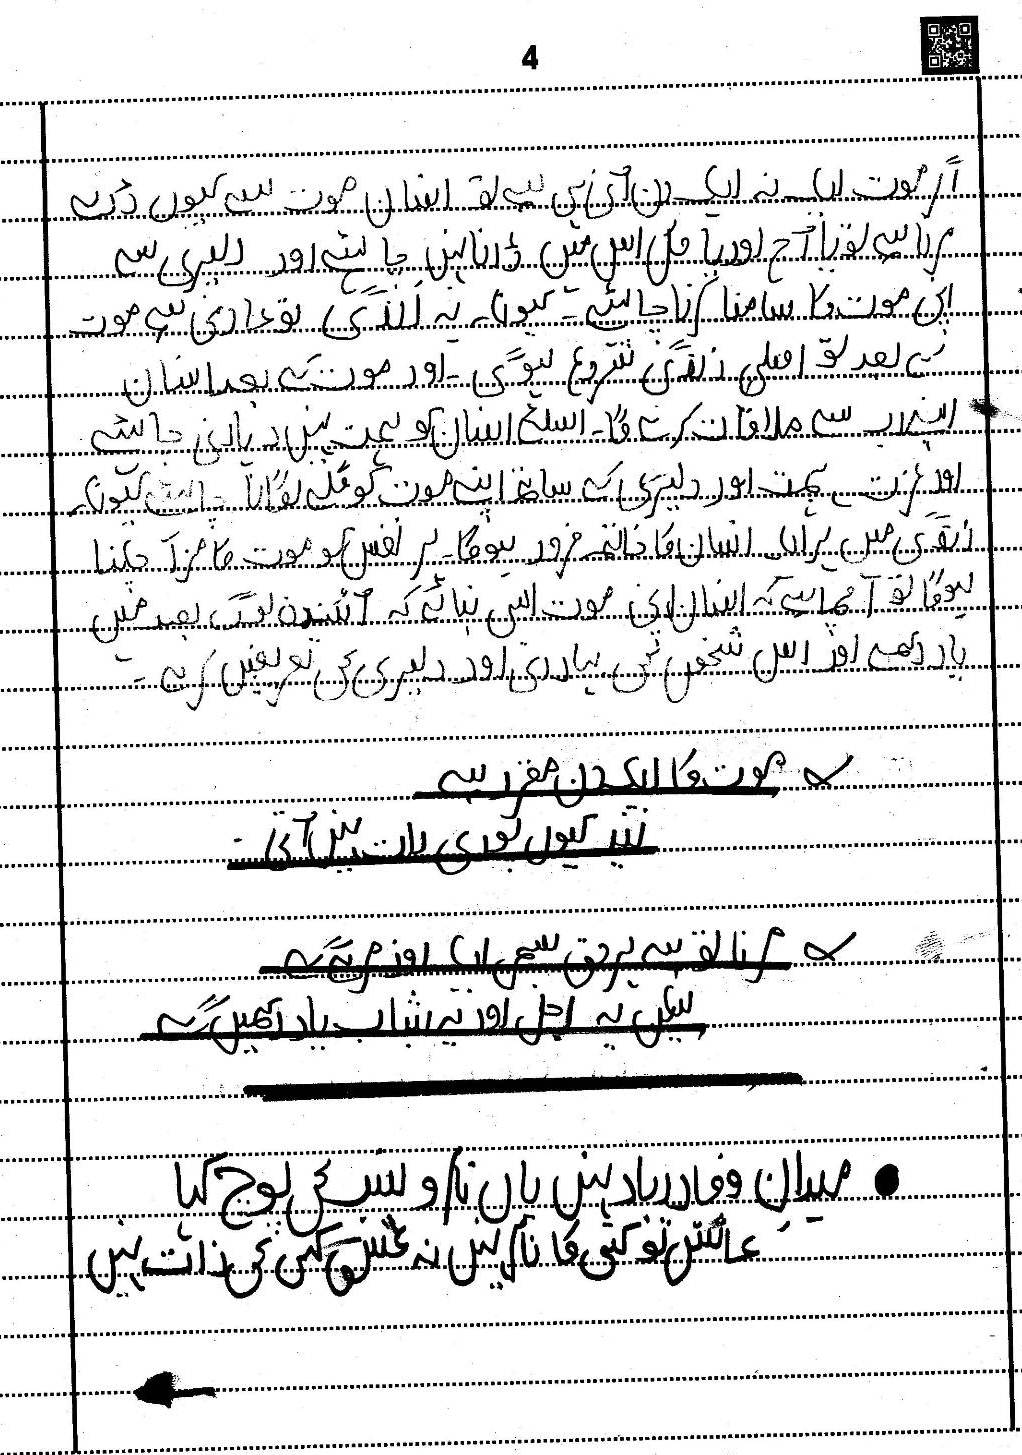 4
اگر موت ایک نہ ایک دن آنی ہی ہے تو انسان موت سے کیوں ڈرے
مرنا ہے تو یا آج اور یا کل اس میں ڈرنا نہیں چاہئے اور دلیری سے
اپنی موت کا سامنا کرنا چاہئے۔ کیونکہ یہ زندگی تو عارضی ہے موت
کے بعد تو اصلی زندگی شروع ہوگی۔ اور موت کے بعد انسان
اپنے رب سے ملاقات کرے گا۔ اسلئے انسان کو ہمت نہیں ہارنی چاہئے
اور عزت ہمت اور دلیری کے ساتھ اپنے موت کو گلے لگانا چاہئے کیونکہ
زندگی میں ہر ایک انسان کا خاتمہ ضرور ہوگا۔ ہر نفس کو موت کا مزا چکنا
ہوگا تو اچھا ہے کہ انسان اپنی موت ایسی بنائے کہ آئندہ لوگ بعد میں
یاد رکھے اور اس شخص کی بہادری اور دلیری کی تعریفیں کرے۔
موت کا ایک دن مقرر ہے
نیند کیوں پوری رات نہیں آتی۔
مرنا تو ہے برحق سبھی ایک روز مریں گے
لیکن یہ اجل اور یہ شباب یاد رکھیں گے
میدانِ وفا دربار نہیں یاں نام و نسب کی پوچ کہا
عاشق تو کسی کا نام نہیں نہ عشق کسی کی ذات نہیں